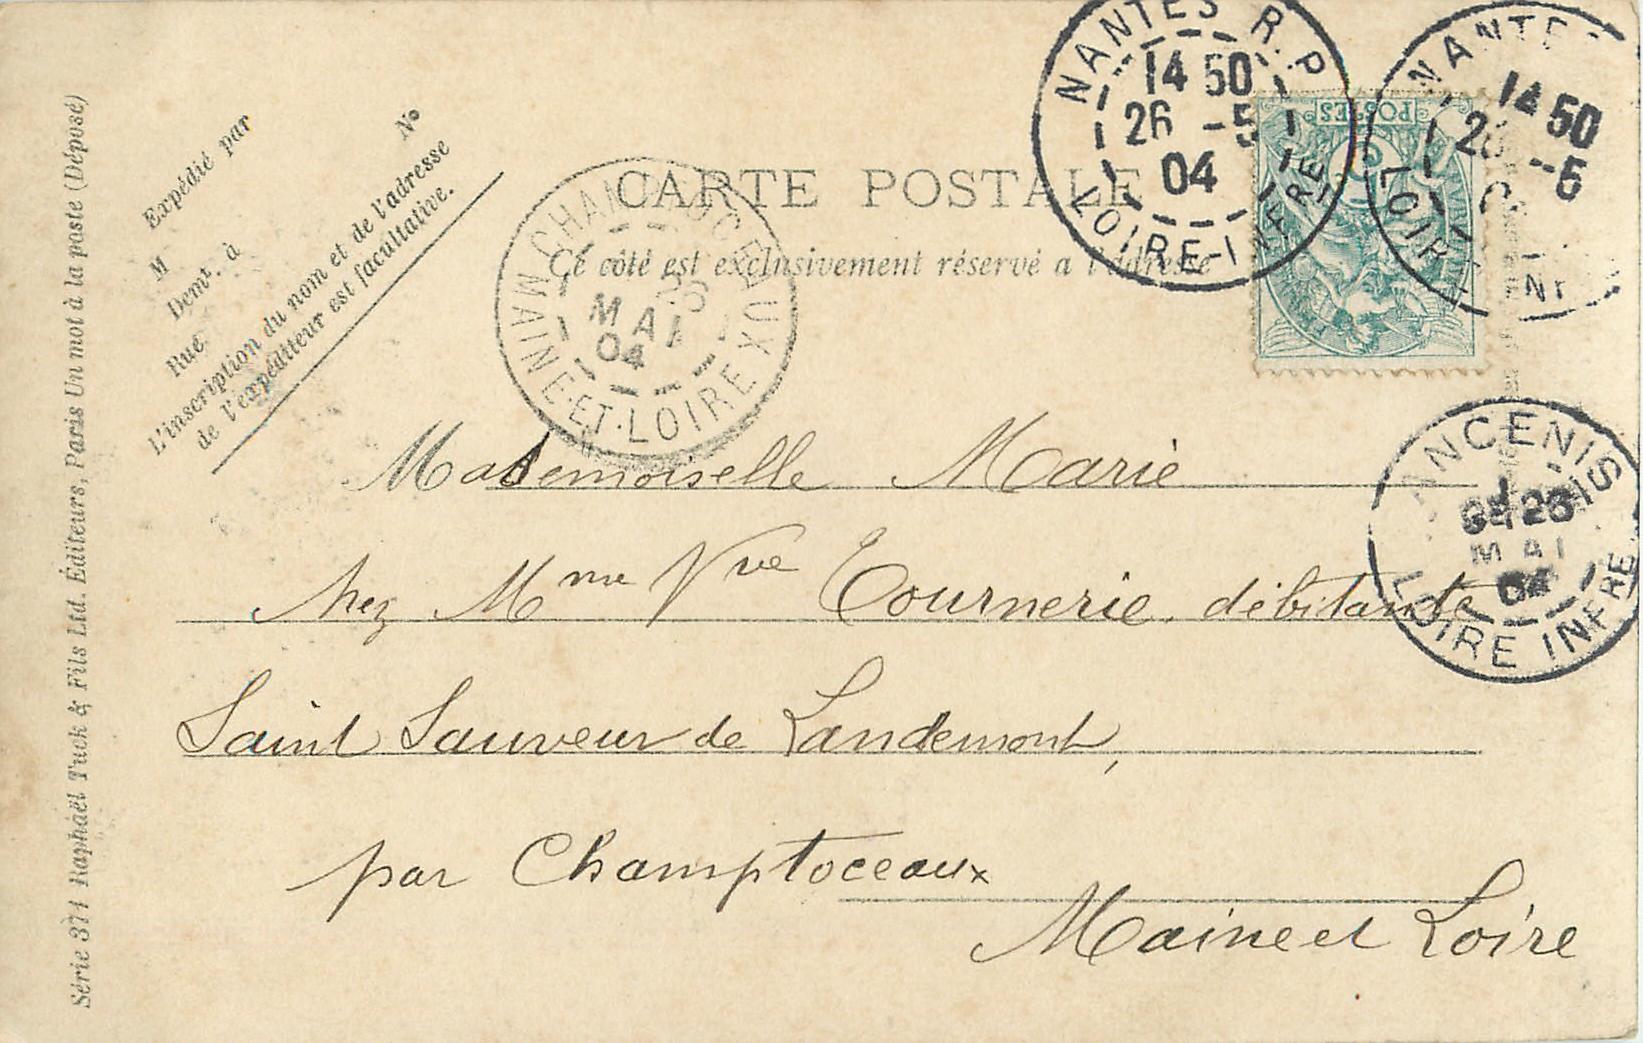 CARTE POSTALE
Ce côté est exclusivement réservé a l'adresse
Nº
Expédié par
M
Demt. à
Rue
L'inscription du nom et de l'adresse
de l'expéditeur est facultative.
Série 371 Raphaël Tuck & Fils Ltd. Éditeurs, Paris Un mot à la poste (Déposé)
NANTES R.P
14 50
26 -5
04
LOIRE-INFRE
NANTES
14 50
-5
LOIRE
POSTES
CHAMPTOCEAUX
26
MAI
04
MAINE-ET-LOIRE
ANCENIS
26
MAI
04
LOIRE INFRE
Mademoiselle Marie
chez Mme Vve Tournerie, débitante
Saint Sauveur de Landemont,
par Champtoceaux
Maine et Loire